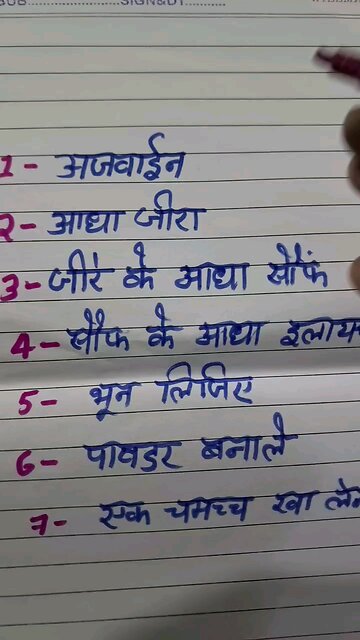 SIGN&DT
1- अजवाईन
2- आधा जीरा
3- जीरे के आधा सौंफ
4- सौंफ के आधा
5- भून लिजिए
6- पावडर बनाले
7- एक चमच्च खा